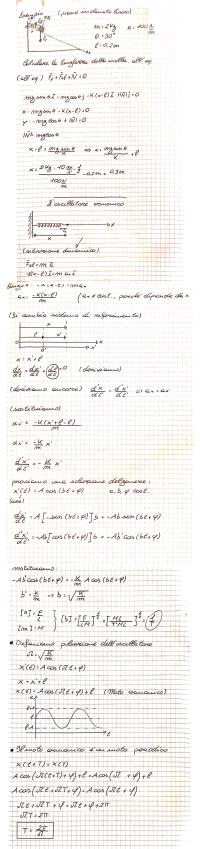 Esempio (piano inclinato liscio)
m = 2 kg   K = 100 N/m
θ = 30°
l = 0,2 m
Calcolare la lunghezza della molla all'eq.
(all'eq.) Fp + Fel + N = 0
mg sinθ î - mg cosθ ĵ - K(x-l) î + |N| ĵ = 0
x: mg sinθ - K(x-l) = 0
y: -mg cosθ + |N| = 0
|N| = mg cosθ
x - l = mg sinθ / K => x = mg sinθ / K + l
L'oscillatore armonico
(situazione dinamica)
Fel = m a
-K(x-l) î = m a î
-K(x-l) = m ax
ax = -K(x-l)/m   (a ≠ cost., perché dipende da x
(Si cambia sistema di riferimento)
x = x' + l
dx/dt = dx'/dt + dl/dt = 0 (deriviamo)
(deriviamo ancora) d²x/dt² = d²x'/dt² => ax = ax'
(sostituiamo)
ax' = -K(x'+l-l)/m
ax' = -K/m x'
d²x'/dt² = -K/m x'
proviamo una soluzione del genere:
x'(t) = A cos(bt+φ)   a, b, φ cost.
dx'/dt = A[-sin(bt+φ)]b = -Ab sin(bt+φ)
d²x'/dt² = -Ab[cos(bt+φ)]b = -Ab² cos(bt+φ)
sostituiamo:
-Ab² cos(bt+φ) = -K/m A cos(bt+φ)
b² = K/m => b = √(K/m)
[K] = F/L
[m] = M
• Definiamo pulsazione dell'oscillatore
Ω = √(K/m)
x'(t) = A cos(Ωt+φ)
x = x' + l
x(t) = A cos(Ωt+φ) + l (Moto armonico)
• Il moto armonico è un moto periodico
x(t+T) = x(t)
A cos(Ω(t+T)+φ) + l = A cos(Ωt+φ) + l
A cos(Ω(t+T)+φ) = A cos(Ωt+φ)
Ωt + ΩT + φ = Ωt + φ + 2π
ΩT = 2π
T = 2π/Ω